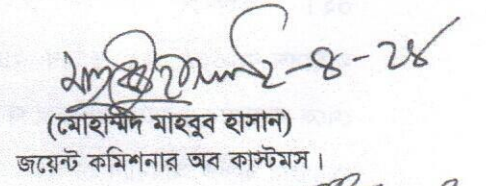 ২-৪-২৪
(মোহাম্মদ মাহবুব হাসান)
জয়েন্ট কমিশনার অব কাস্টমস।